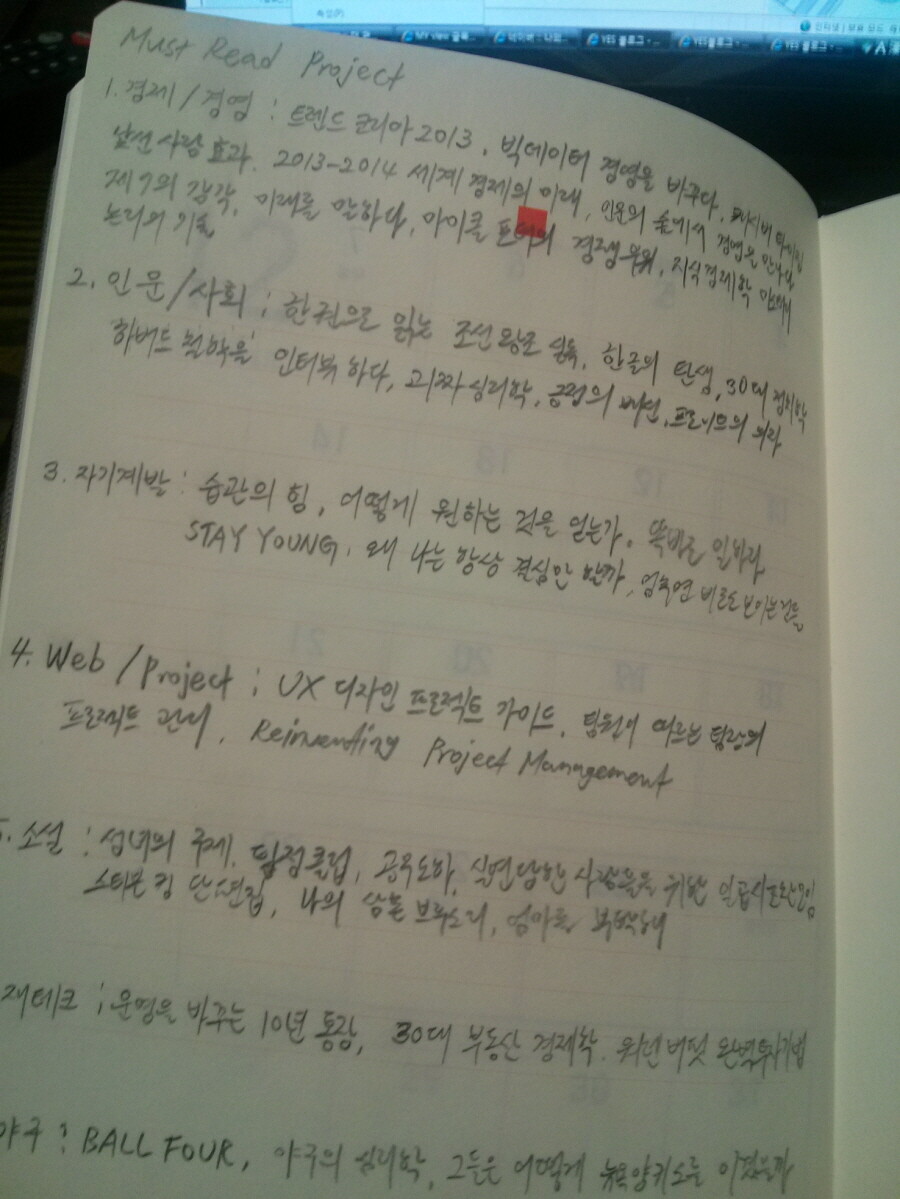 MY view 글목
YES 블로그 - ...
YES 블로그 - ...
YES 블로그 - ...
Must Read Project
1. 경제/경영 : 트렌드 코리아 2013, 빅데이터 경영을 바꾸다,
낯선 사람 효과. 2013-2014 세계 경제의 미래, 인문의 숲에서 경영을 만나다,
제7의 감각, 미래를 말하다, 마이클 포터의 경쟁우위, 지식경제학
논리의 기술
2. 인문/사회 : 한권으로 읽는 조선왕조 실록, 한글의 탄생, 30대 심리학
하버드 철학을 인터뷰 하다, 괴짜심리학, 긍정의 배신, 프로이트의 의자
3. 자기계발 : 습관의 힘, 어떻게 원하는 것을 얻는가, 똑바로 일하라
STAY YOUNG, 왜 나는 항상 결심만 할까, 멈추면 비로소 보이는 것들
4. Web / Project : UX 디자인 프로젝트 가이드, 팀원이 따르는 팀장의
프로젝트 관리, Reinventing Project Management
5. 소설 : 성녀의 구제, 탐정클럽, 공무도하, 실연당한 사람들을 위한 일곱시 조찬모임
스티븐 킹 단편집, 나의 삼촌 브루스 리, 엄마를 부탁해
재테크 : 운명을 바꾸는 10년 통장, 30대 부동산 경제학, 워런버핏 완벽투자기법
야구 : BALL FOUR, 야구의 심리학, 그들은 어떻게 뉴욕양키스를 이겼을까